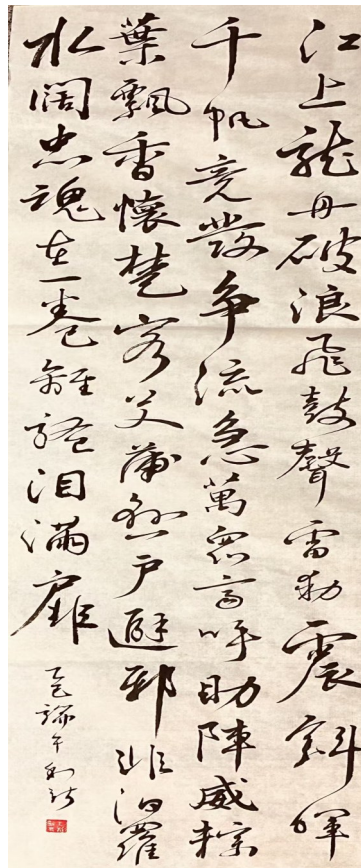 江上龍舟破浪飛鼓聲雷動震斜暉
千帆竞發争流急萬衆高呼助陣威粽
葉飄香懷楚客艾蒲懸户避邪非汨羅
水阔忠魂在一卷離騷泪满扉
乙巳端午